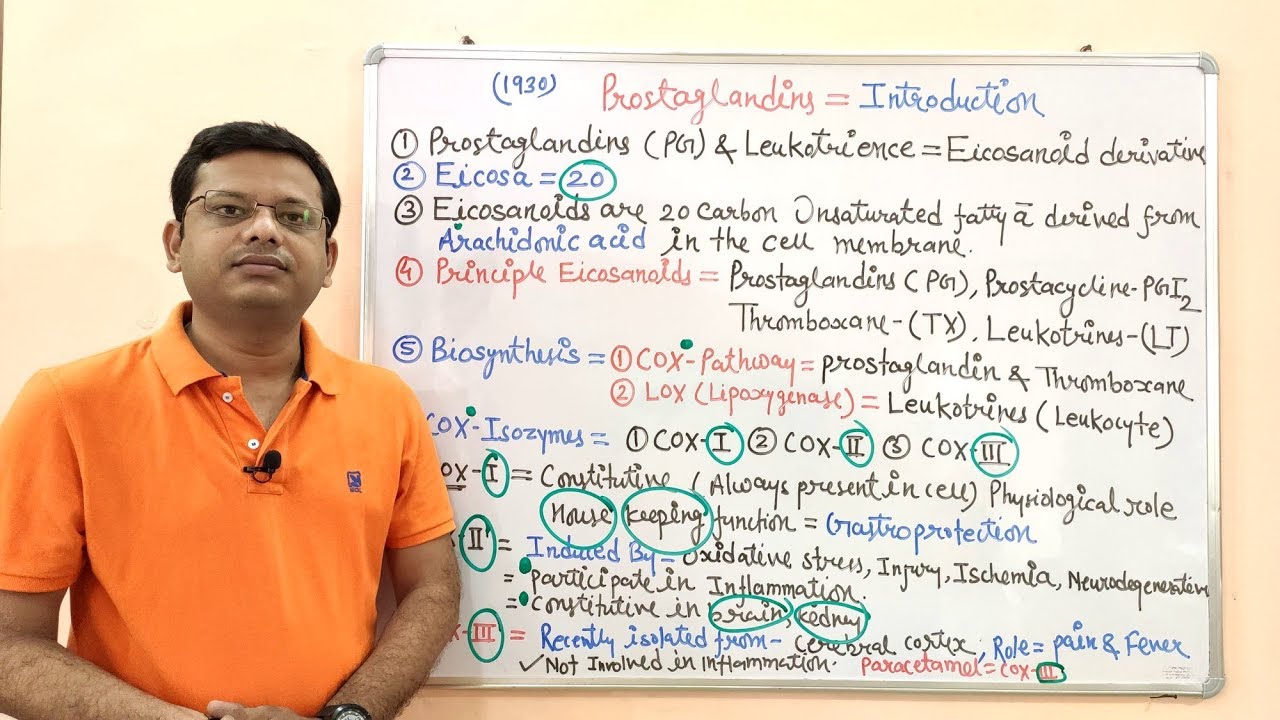 (1930) Prostaglandins = Introduction
① Prostaglandins (PG) & Leukotrience = Eicosanoid derivative
② Eicosa = 20
③ Eicosanoids are 20 carbon Unsaturated fatty ā derived from
Arachidonic acid in the cell membrane.
④ Principle Eicosanoids = Prostaglandins (PG), Prostacycline-PGI2
Thromboxane-(TX), Leukotrines-(LT)
⑤ Biosynthesis = ① COX-Pathway = prostaglandin & Thromboxane
② LOX (Lipoxygenase) = Leukotrines (Leukocyte)
COX-Isozymes = ① COX-I ② COX-II ③ COX-III
OX-I = Constitutive (Always present in cell) Physiological role
House keeping function = Gastroprotection
II = Induced By - Oxidative stress, Injury, Ischemia, Neurodegenerative
= participate in Inflammation.
= constitutive in brain, kedney
X-III = Recently isolated from - cerebral cortex, Role = pain & Fever
✓ Not Involved in Inflammation. Paracetamol = COX-III